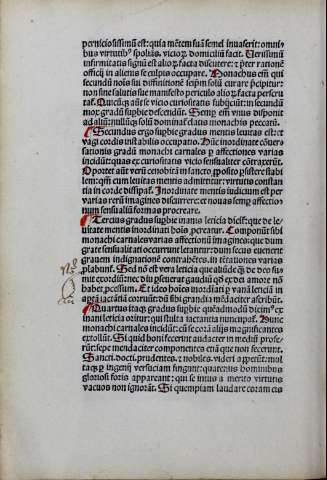 perniciosissimũ est: quia mẽtem suã semel inuaserit: omni
bus virtutibꝰ spoliãs. vicioꝝ domiciliũ facit. Uerissimũ
infirmitatis signũ est alioꝝ facta discutere: ⁊ p̃ter rationẽ
officij in alienis se culpis occupare. Monachus em̃ qui
secundũ nois sui diffinitionẽ seip̃m solũ curare p̃cipitur:
non sine salutis sue manifesto periculo alioꝝ facta perscru
tat̃. Quicũqꝫ aũt se vicio curiositatis subijciunt: in secundũ
mox gradũ supbie descẽdũt. Semp em̃ vnus disponit
ad aliũ: nullusqꝫ solũ dominat̃
Secundus ergo supbie gradus mentis leuitas est: et
vagi cordis instabilis occupatio. Hũc inordinate conuer
sationis gradũ monachi carnales ꝑ affectiones varias
incidũt: quas ex curiositatis vicio sensualiter cõtraxerũt.
Oportet aũt verũ cenobitã in sancto ꝓposito ꝑsistere stabi
lem: qm̃ cum leuitas mentis admittitur: virtutis constan
tia in corde dissipat̃. Inordinate mentis iudicium est per
varias rerũ imagines discurrere: et nouas semp affectio
num sensualiũ formas procreare.
Tercius gradus supbie inanis leticia dicit̃: que de le
uitate mentis inordinati hois ꝓcreatur.
monachi carnales varias affectionũ imagines: que dum
grate sensualitati occurrunt letantur: dum secus euenerit
grauem indignationẽ contrahẽtes. in tẽtationes varias
plabunt̃. Sed nõ est vera leticia que aliũde qꝫ de deo su
mit exordiũ: nec diu
habet: pressium. Et ideo hoies inordinati ꝑ vanã leticiã in
corruũt: dũ sibi grandia mẽdaciter ascribũt.
Quartus itaqꝫ gradus supbie quẽadmodũ dicim⁹ ex
inani leticia oritur: qui stulta iactantia nuncupat̃. Hunc
monachi carnales incidũt: cũ se corã alijs magnificantes
extollũt. Si quid boni fecerint audacter in mediũ profe-
rũt: sepe mendaciter componentes etiã que non fecerunt.
Sancti. docti. prudentes. ⁊ nobiles. videri appetũt: mul
tasqꝫ ꝑ ingenij versuciam fingunt: quatenus hominibus
gloriosi foris appareant: qui se intus a merito virtutis
vacuos non ignorãt. Si quempiam laudare coram eis